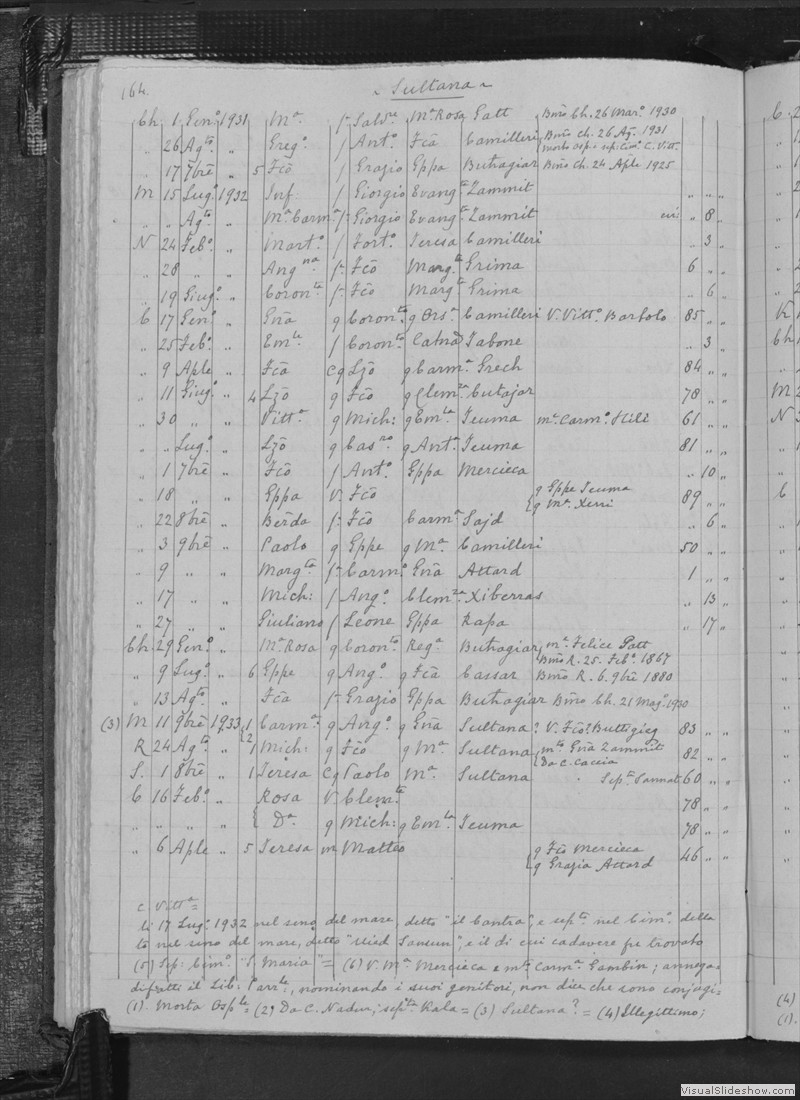 164.
~ Sultana ~
Ch 1 Genº 1931 Mª f Salvre Mª Rosa Gatt Bmo Ch. 26 Marº 1930
„ 26 Agto „ Gregº f Antº Fcã Camilleri Bmo ch. 26 Ag. 1931
morto C. Vitt.
„ 17 7bre „ 5 Fcõ f Grazio Gppa Buhagiar Bmo Ch. 24 Aple 1925
M 15 Lugº 1932 Inf. f Giorgio Evangta Zammit „ „ „
„ „ Agto „ Mª Carmª f Giorgio Evangta Zammit „ 8 „
N 24 Febº „ Martº f Fortº Teresa Camilleri „ 3 „
„ 28 „ „ Angna f Fcõ Margta Grima 6 „ „
„ 19 Giugº „ Coronta f Fcõ Margta Grima „ 6 „
C 17 Genº „ Gña g Coronto g Orsª Camilleri V. Vittº Bartolo 85 „ „
„ 25 Febº „ Emte f Coronto Catna Tabone „ 3 „
„ 9 Aple „ Fcã Cg Lzõ g Carmª Grech 84 „ „
„ 11 Giugº „ 4 Lzõ g Fcõ g Clemza Cutajar 78 „ „
„ 30 „ „ Vittª g Mich: g Emta Teuma mta Carmº Hili 61 „ „
„ „ Lugº „ Lzõ g Casno g Antª Teuma 81 „ „
„ 1 7bre „ Fcõ f Antº Gppa Mercieca „ 10 „
„ 18 „ „ Gppa V. Fcõ g Gppe Teuma
g Mª Xerri 89 „ „
„ 22 8bre „ Berda f Fcõ Carmª Sajd „ 6 „
„ 3 9bre „ Paolo g Gppe g Mª Camilleri 50 „ „
„ 9 „ „ Margta f Carmº Gña Attard 1 „ „
„ 17 „ „ Mich: f Angº Clemza Xiberras „ 13 „
„ 27 „ „ Giuliano f Leone Gppa Rapa „ 17 „
Ch 29 Genº „ Mª Rosa g Coronto Regª Buhagiar mª Felice Gatt
Bmo R. 25. Febº 1867
„ 9 Lugº „ 6 Gppe g Angº g Fcã Cassar Bmo R. 6. 9bre 1880
„ 13 Agto „ Fcã f Grazio Gppa Buhagiar Bmo Ch. 21 Magº 1930
(3) M 11 9bre 1933 1 2 Carmª g Angº g Gña Sultana? V. Fcõ? Buttigieg 83 „ „
R 24 Agto „ 1 Mich: g Fcõ g Mª Sultana mto Gña Zammit
Da C. Caccia 82 „ „
S. 1 8bre „ 1 Teresa Cg Paolo Mª Sultana „ Septa Sannat 60 „ „
C 16 Febº „ Rosa V. Clemte 78 „ „
„ „ „ „ Dª g Mich: g Emta Teuma 78 „ „
„ 6 Aple „ 5 Teresa m Matteo g Fcõ Mercieca
g Grazia Attard 46 „ „
C. Vittª =
li 17 Lugº 1932 nel seno del mare, detto "il Cantra", e septo nel Cimº della
to nel seno del mare, detto "Uied Sansun", e il di cui cadavere fu trovato
(5) Sep: Cimº "S. Maria" = (6) V. Mª Mercieca e mto Carmª Gambin; annega-
difatti il Lib: Parrle, nominando i suoi genitori, non dice che sono conjugi =
(1). Morta Osple = (2) Da C. Nadur; septa Kala = (3) Sultana? = (4) Illegittimo;
VisualSlideshow.com